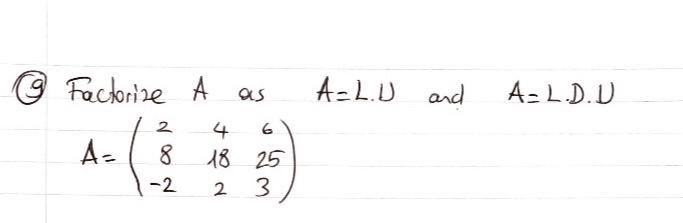 9 Factorize A as A=L.U and A=L.D.U
2 4 6
A= 8 18 25
-2 2 3